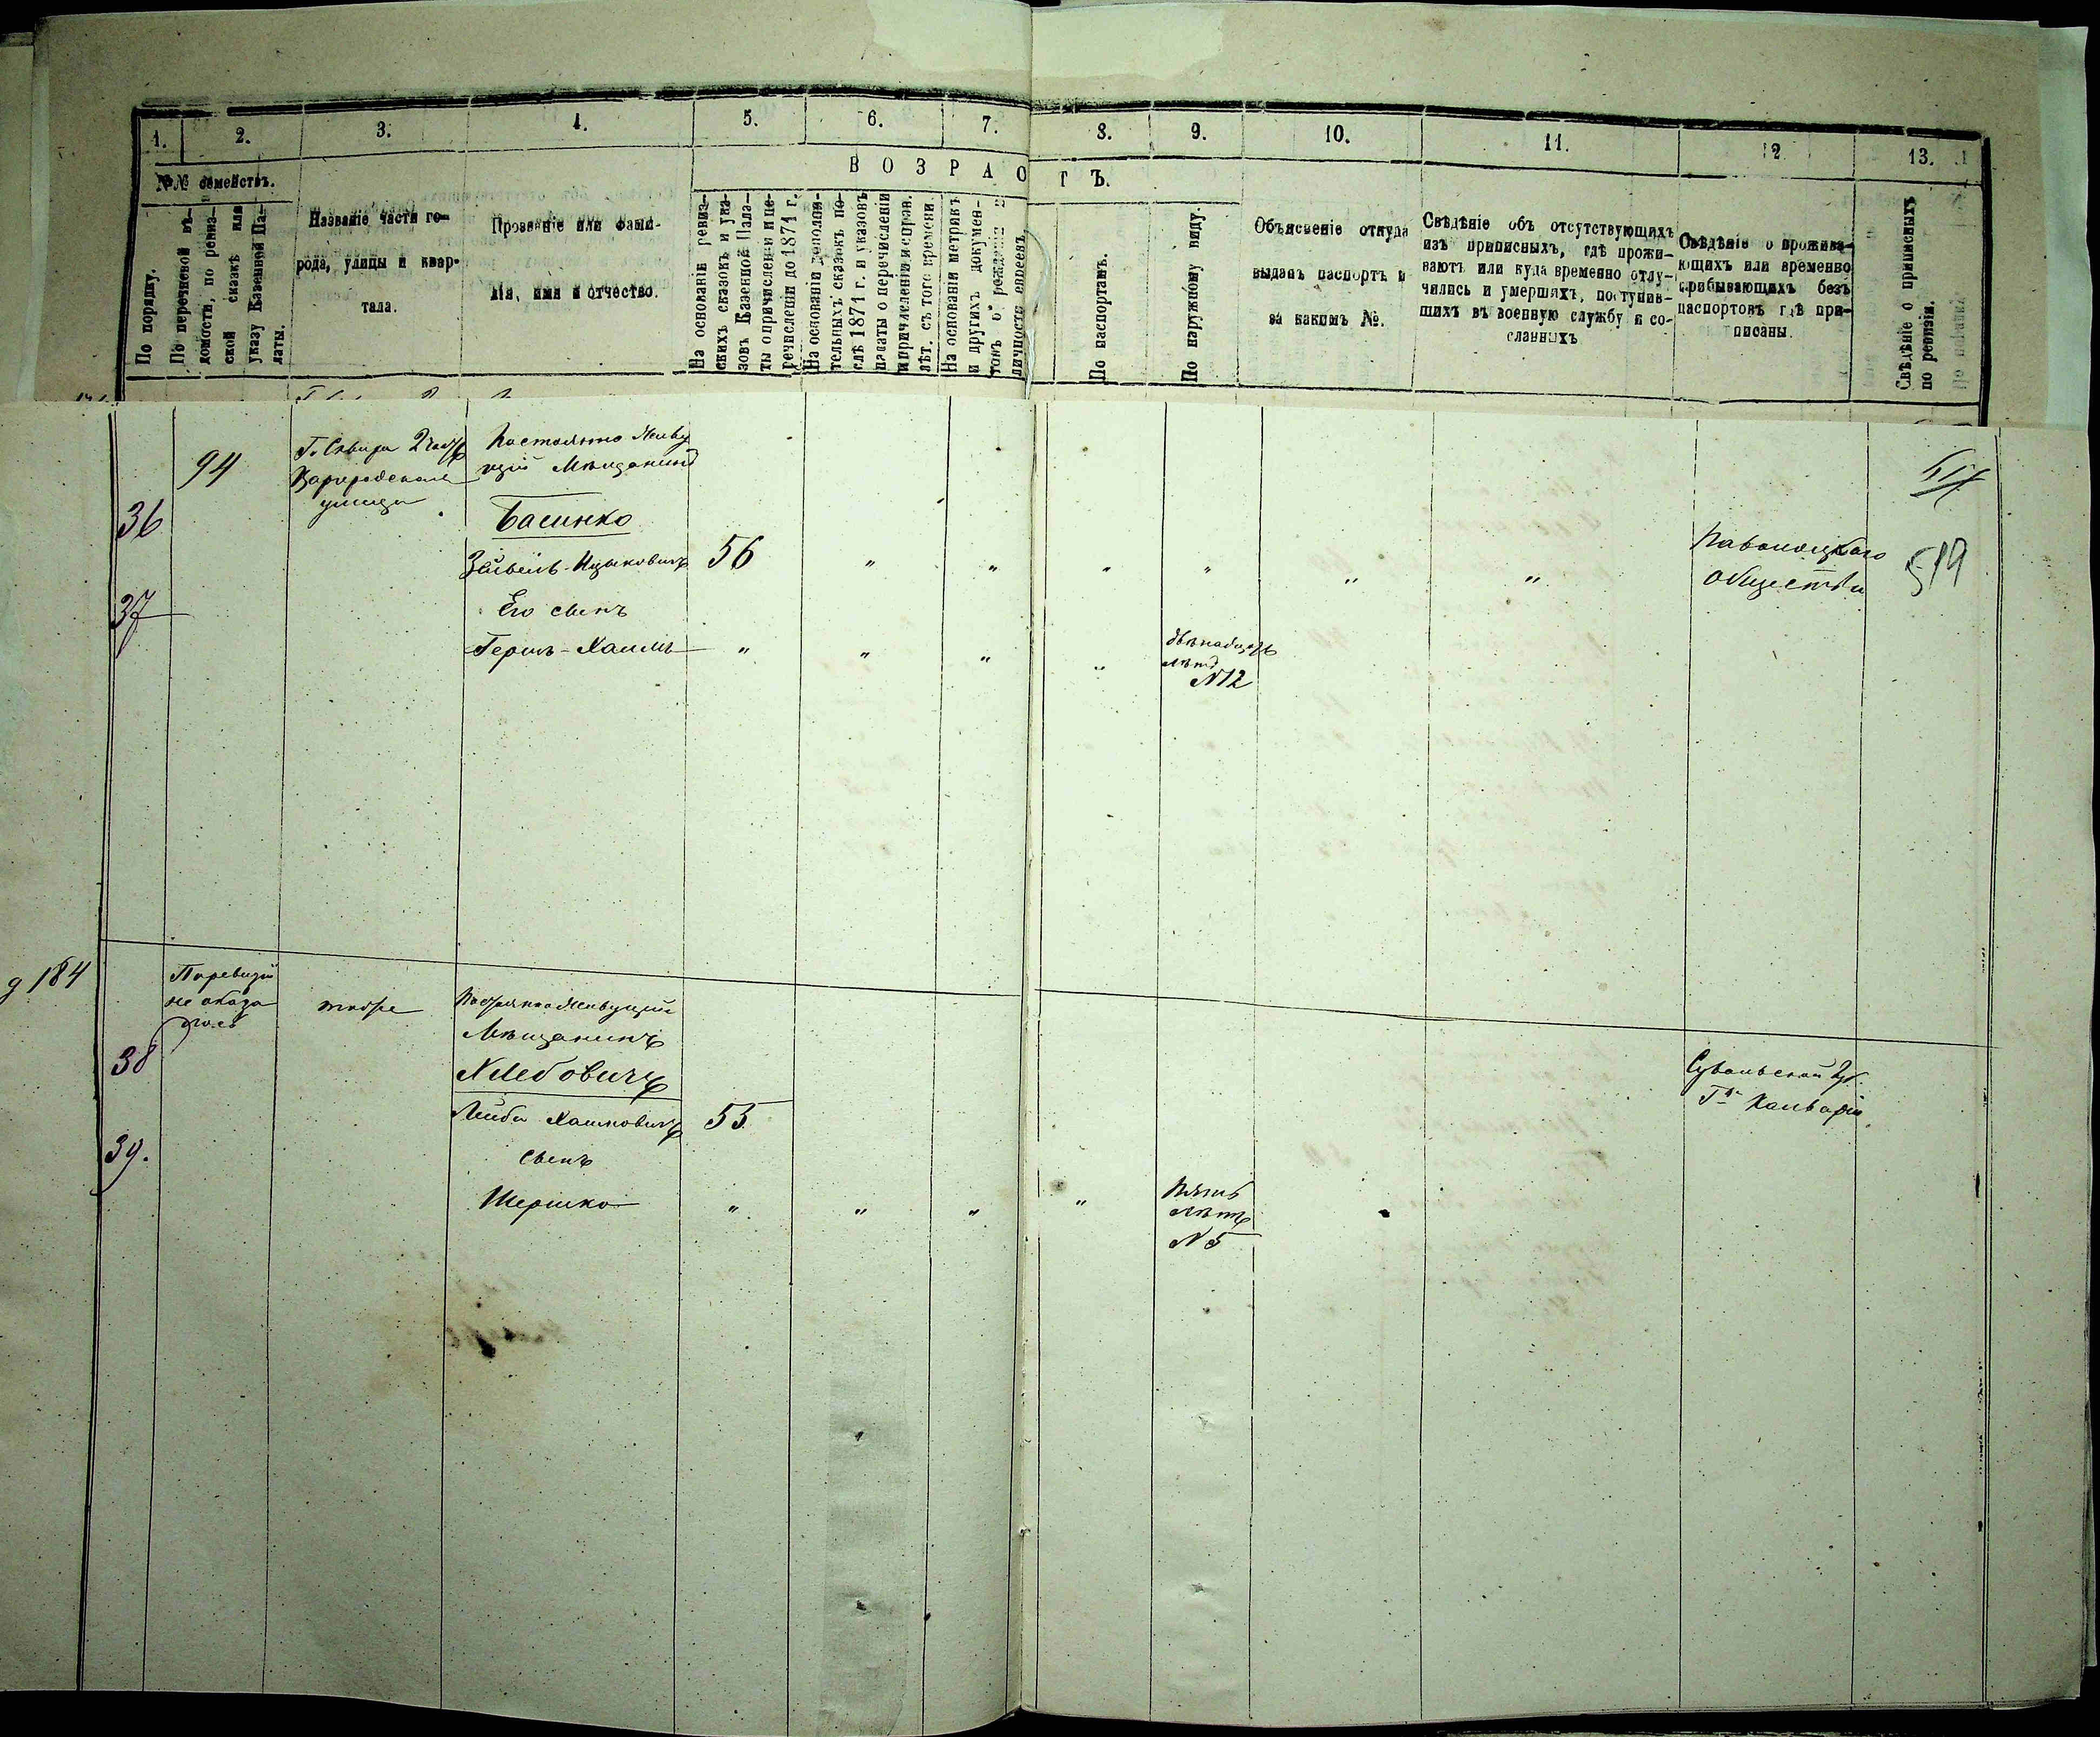 1.
2.
3.
4.
5.
6.
7.
8.
9.
10.
11.
12
13.
№№ семействъ.
В О З Р А С Т Ъ.
По порядку.
По перечневой вѣ-
домости, по ревиз-
ской сказкѣ или
указу Казенной Па-
латы.
Названіе части го-
рода, улицы и квар-
тала.
Прозваніе или фами-
лія, имя и отчество.
На основаніи ревиз-
скихъ сказокъ и ука-
зовъ Казенной Пала-
ты о причисленіи и пе-
речисленіи до 1871 г.
На основаніи дополни-
тельныхъ сказокъ по-
слѣ 1871 г. и указовъ
палаты о перечисленіи
и причисленіи и справ.
лѣт. съ того времени.
На основаніи метрикъ
и другихъ докумен-
товъ о рожденіи и
личности евреевъ.
По паспортамъ.
По наружному виду.
Объясненіе откуда
выданъ паспортъ и
за какимъ №.
Свѣдѣніе объ отсутствующихъ
изъ приписныхъ, гдѣ прожи-
ваютъ или куда временно отлу-
чились и умершихъ, поступив-
шихъ въ военную службу и со-
сланныхъ
Свѣдѣніе о прожива-
ющихъ или временно
прибывающихъ безъ
паспортовъ гдѣ при-
писаны.
Свѣдѣніе о приписныхъ
по ревизіи.
94
Г. Сквира 2 часть
улица
Постоянно Живу
щій Мѣщанинъ
36
Басинко
Зейвель-Ицьковичъ
56
" " " " " "
Паволоцкаго
общества
519
37
Его сынъ
Герш-Хаимъ
" " " "
двѣнадцать
лѣтъ
№12
д 184
По ревизіи
не оказа
лось
тоже
Постоянно Живущій
Мѣщанинъ
38
Хлебовичъ
Лейба Хаимовичъ
55
Сувалской Губ.
Кальваріи
39.
сынъ
Шершко
" " " "
Пять
лѣтъ
№ 5